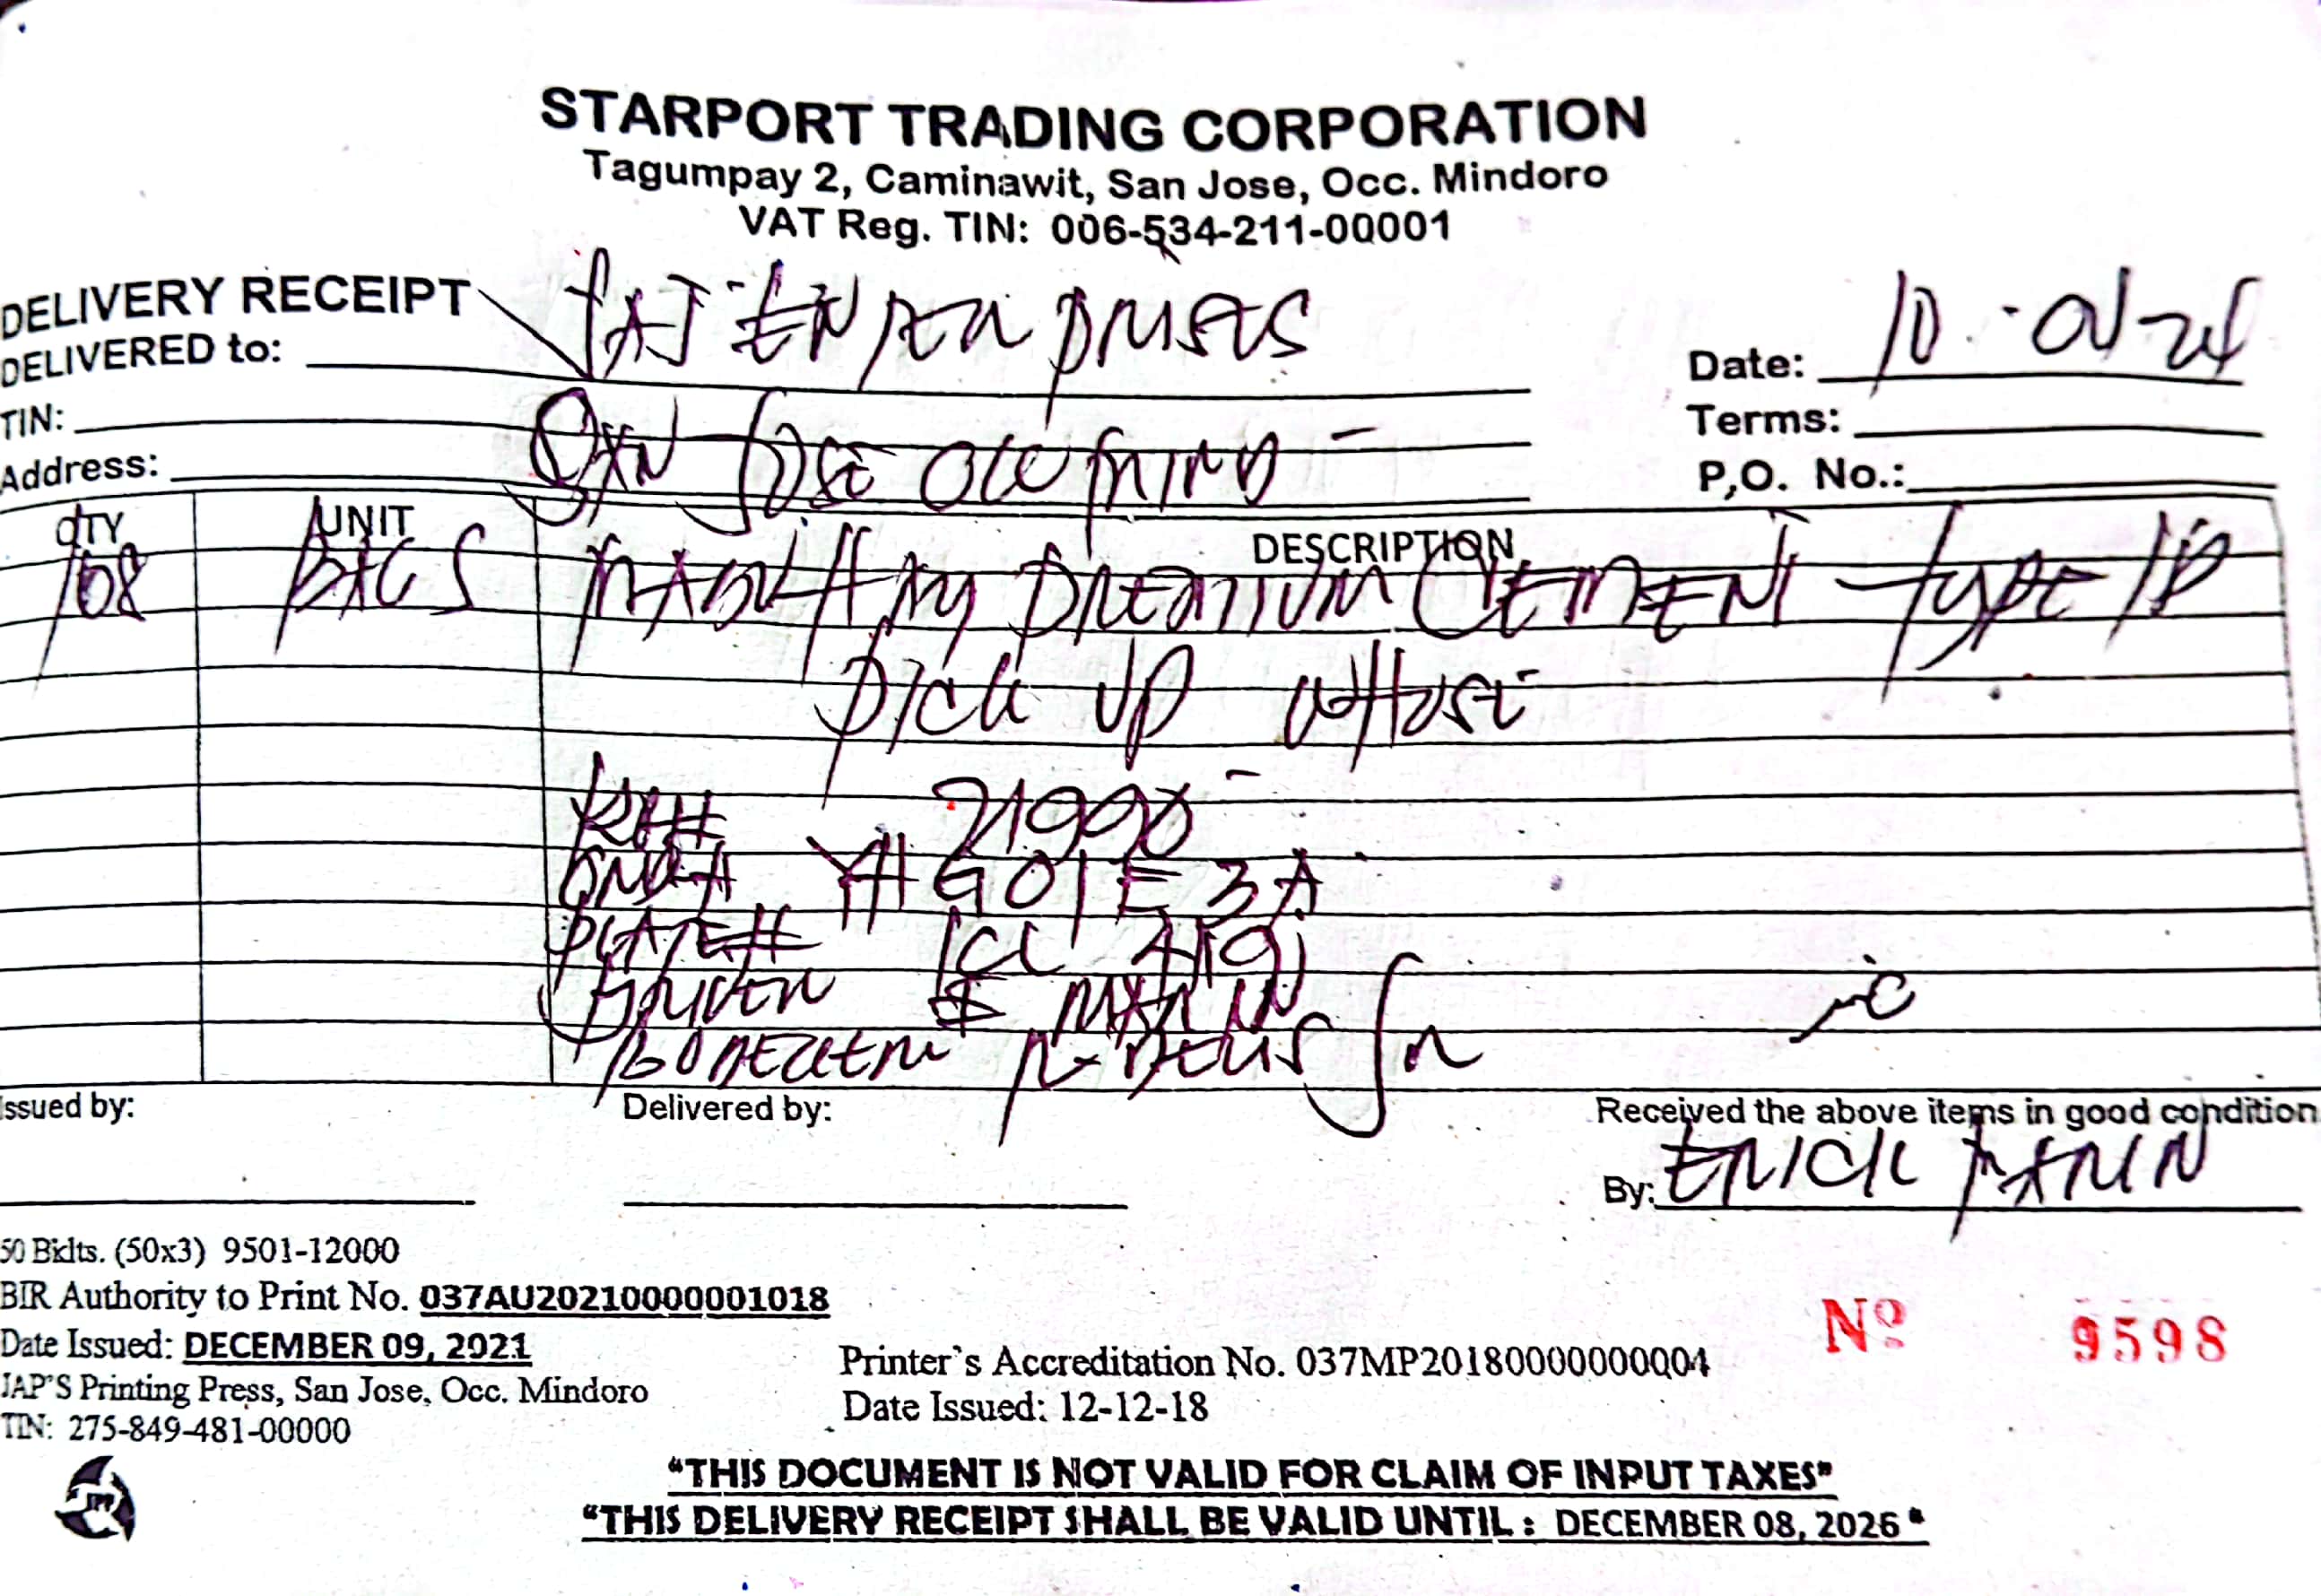 STARPORT TRADING CORPORATION
Tagumpay 2, Caminawit, San Jose, Occ. Mindoro
VAT Reg. TIN: 006-534-211-00001
DELIVERY RECEIPT
DELIVERED to:
Date: 10-01-24
TIN:
Terms:
Address: SAN JOSE OCC MIND
P,O. No.:
QTY UNIT DESCRIPTION
108 BAGS PREMIUM CEMENT - TYPE 1P
PICK UP WHSE
21990
G01E3A
PLATE#
DRIVER
JR
Issued by:
Delivered by:
Received the above items in good condition
By: ERICK
50 Bklts. (50x3) 9501-12000
BIR Authority to Print No. 037AU20210000001018
Date Issued: DECEMBER 09, 2021
JAP'S Printing Press, San Jose, Occ. Mindoro
TIN: 275-849-481-00000
Printer's Accreditation No. 037MP20180000000004
Date Issued: 12-12-18
Nº 9598
JPP
"THIS DOCUMENT IS NOT VALID FOR CLAIM OF INPUT TAXES"
"THIS DELIVERY RECEIPT SHALL BE VALID UNTIL : DECEMBER 08, 2026"